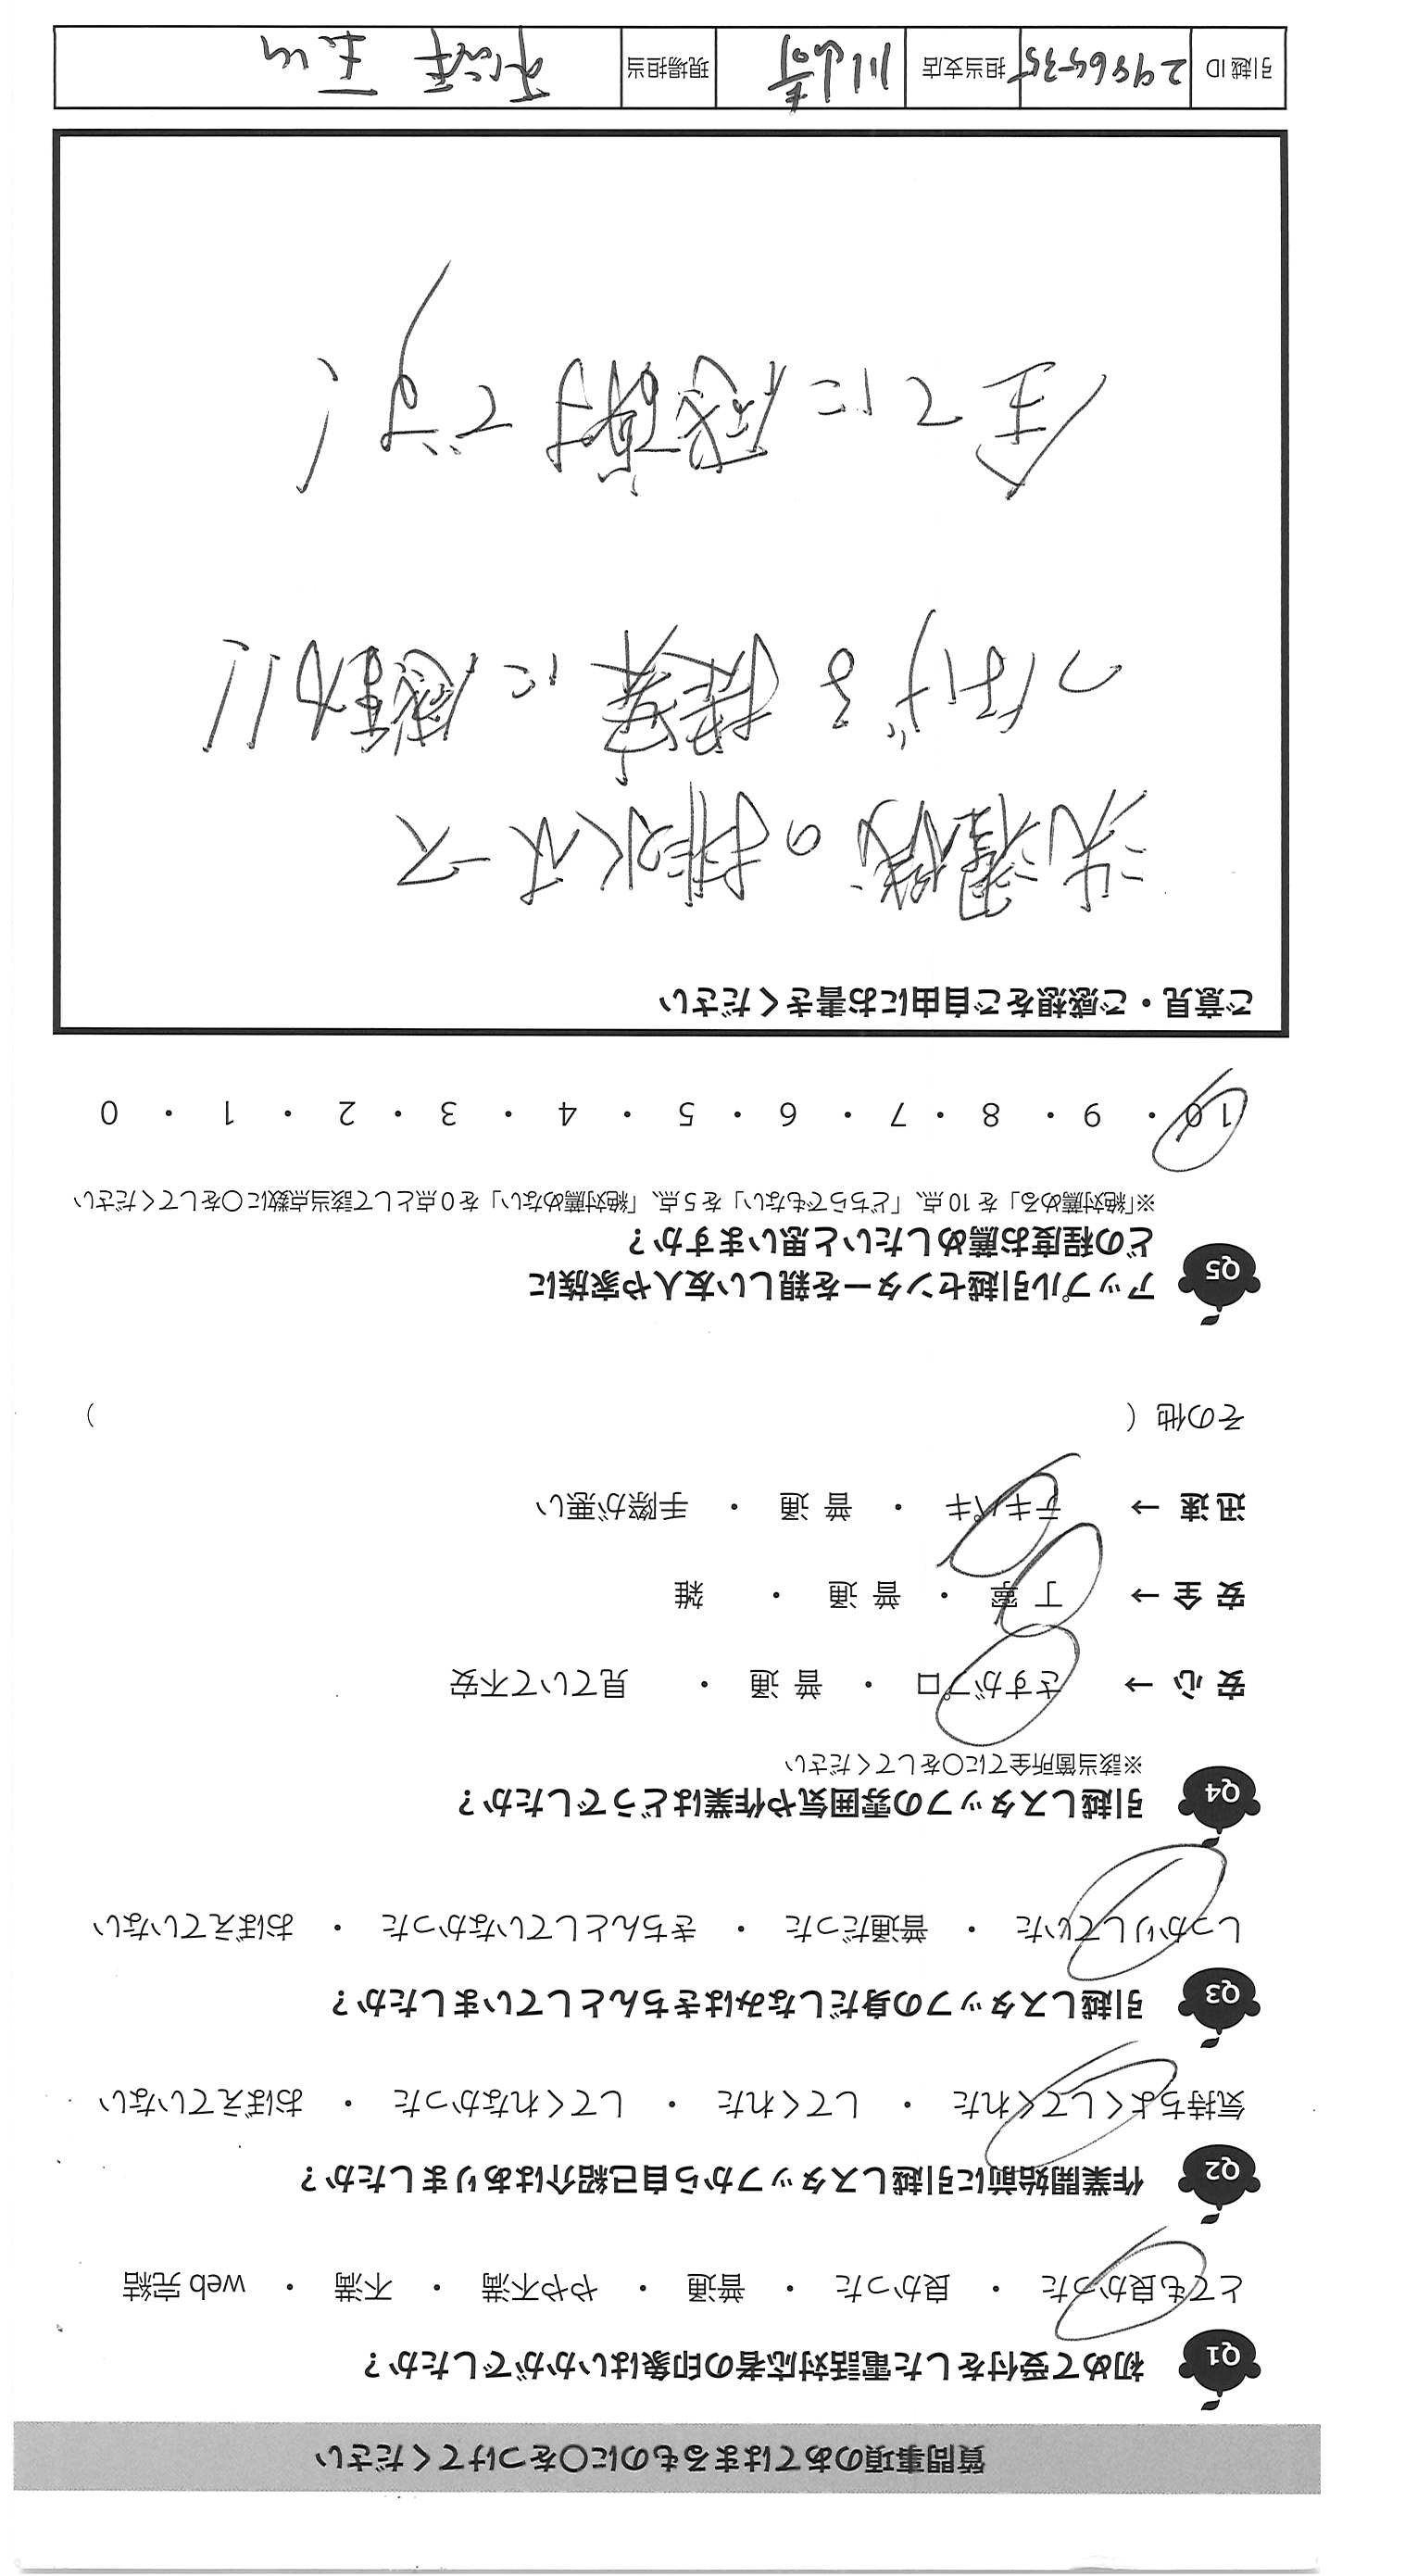 質問事項のあてはまるものに○をつけてください
Q1 初めて受付をした電話対応者の印象はいかがでしたか？
とても良かった ・ 良かった ・ 普通 ・ やや不満 ・ 不満 ・ web 完結
Q2 作業開始前に引越しスタッフから自己紹介はありましたか？
気持ちよくしてくれた ・ してくれた ・ してくれなかった ・ おぼえていない
Q3 引越しスタッフの身だしなみはきちんとしていましたか？
しっかりしていた ・ 普通だった ・ きちんとしていなかった ・ おぼえていない
Q4 引越しスタッフの雰囲気や作業はどうでしたか？
※該当箇所全てに○をしてください
安 心 → さすがプロ ・ 普 通 ・ 見ていて不安
安 全 → 丁 寧 ・ 普 通 ・ 雑
迅 速 → テキパキ ・ 普 通 ・ 手際が悪い
その他（ ）
Q5 アップル引越センターを親しい友人や家族に
どの程度お薦めしたいと思いますか？
※「絶対薦める」を 10 点、「どちらでもない」を 5 点、「絶対薦めない」を 0 点として該当点数に○をしてください
10 ・ 9 ・ 8 ・ 7 ・ 6 ・ 5 ・ 4 ・ 3 ・ 2 ・ 1 ・ 0
ご意見・ご感想をご自由にお書きください
洗濯機の排水ホース
つなげる技算に感動!!
全てに感謝です!
引越 ID 2986535 担当支店 川崎 現場担当